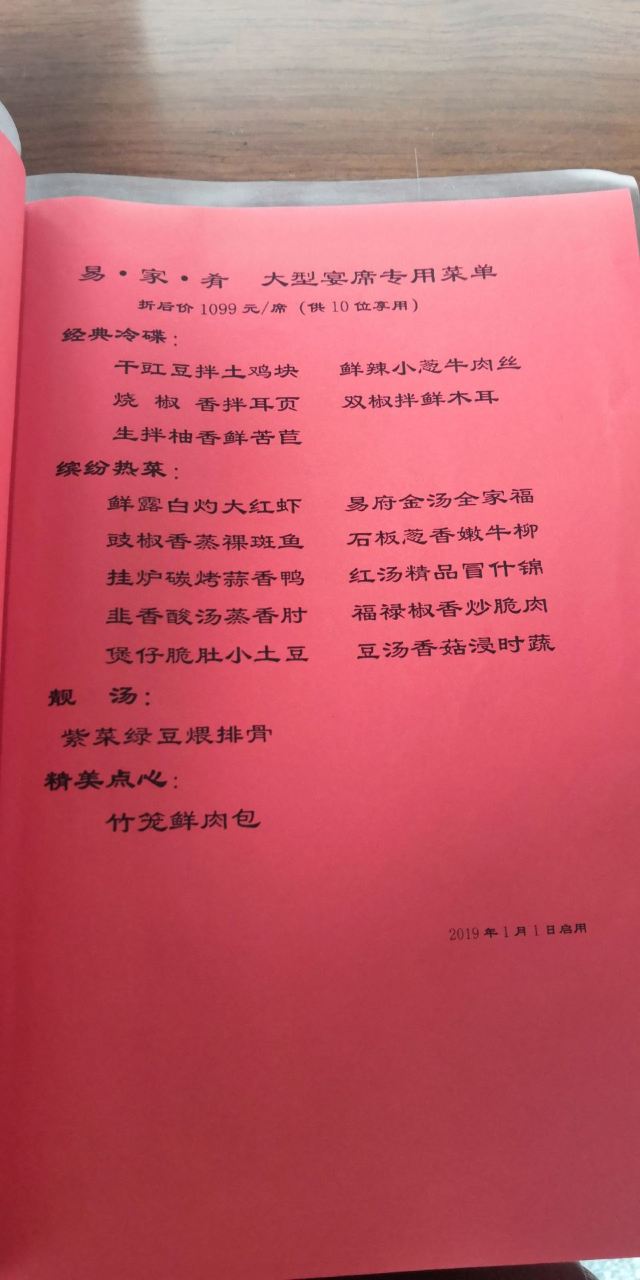 易·家·肴 大型宴席专用菜单
折后价 1099 元/席（供 10 位享用）
经典冷碟：
干豇豆拌土鸡块 鲜辣小葱牛肉丝
烧 椒 香拌耳页 双椒拌鲜木耳
生拌柚香鲜苦苣
缤纷热菜：
鲜露白灼大红虾 易府金汤全家福
豉椒香蒸裸斑鱼 石板葱香嫩牛柳
挂炉碳烤蒜香鸭 红汤精品冒什锦
韭香酸汤蒸香肘 福禄椒香炒脆肉
煲仔脆肚小土豆 豆汤香菇浸时蔬
靓 汤：
紫菜绿豆煨排骨
精美点心：
竹笼鲜肉包
2019 年 1 月 1 日启用